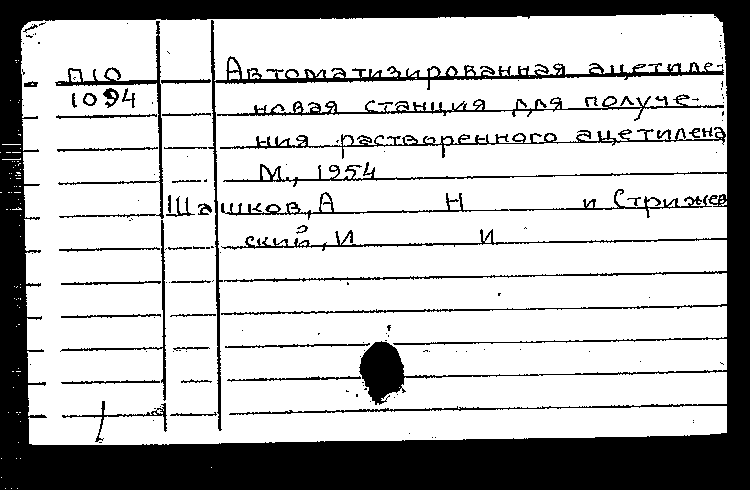 П10 Автоматизированная ацетиле-
1094 новая станция для получе-
ния растворенного ацетилена
М., 1954
Шашков, А Н и Стрижев
ский, И И